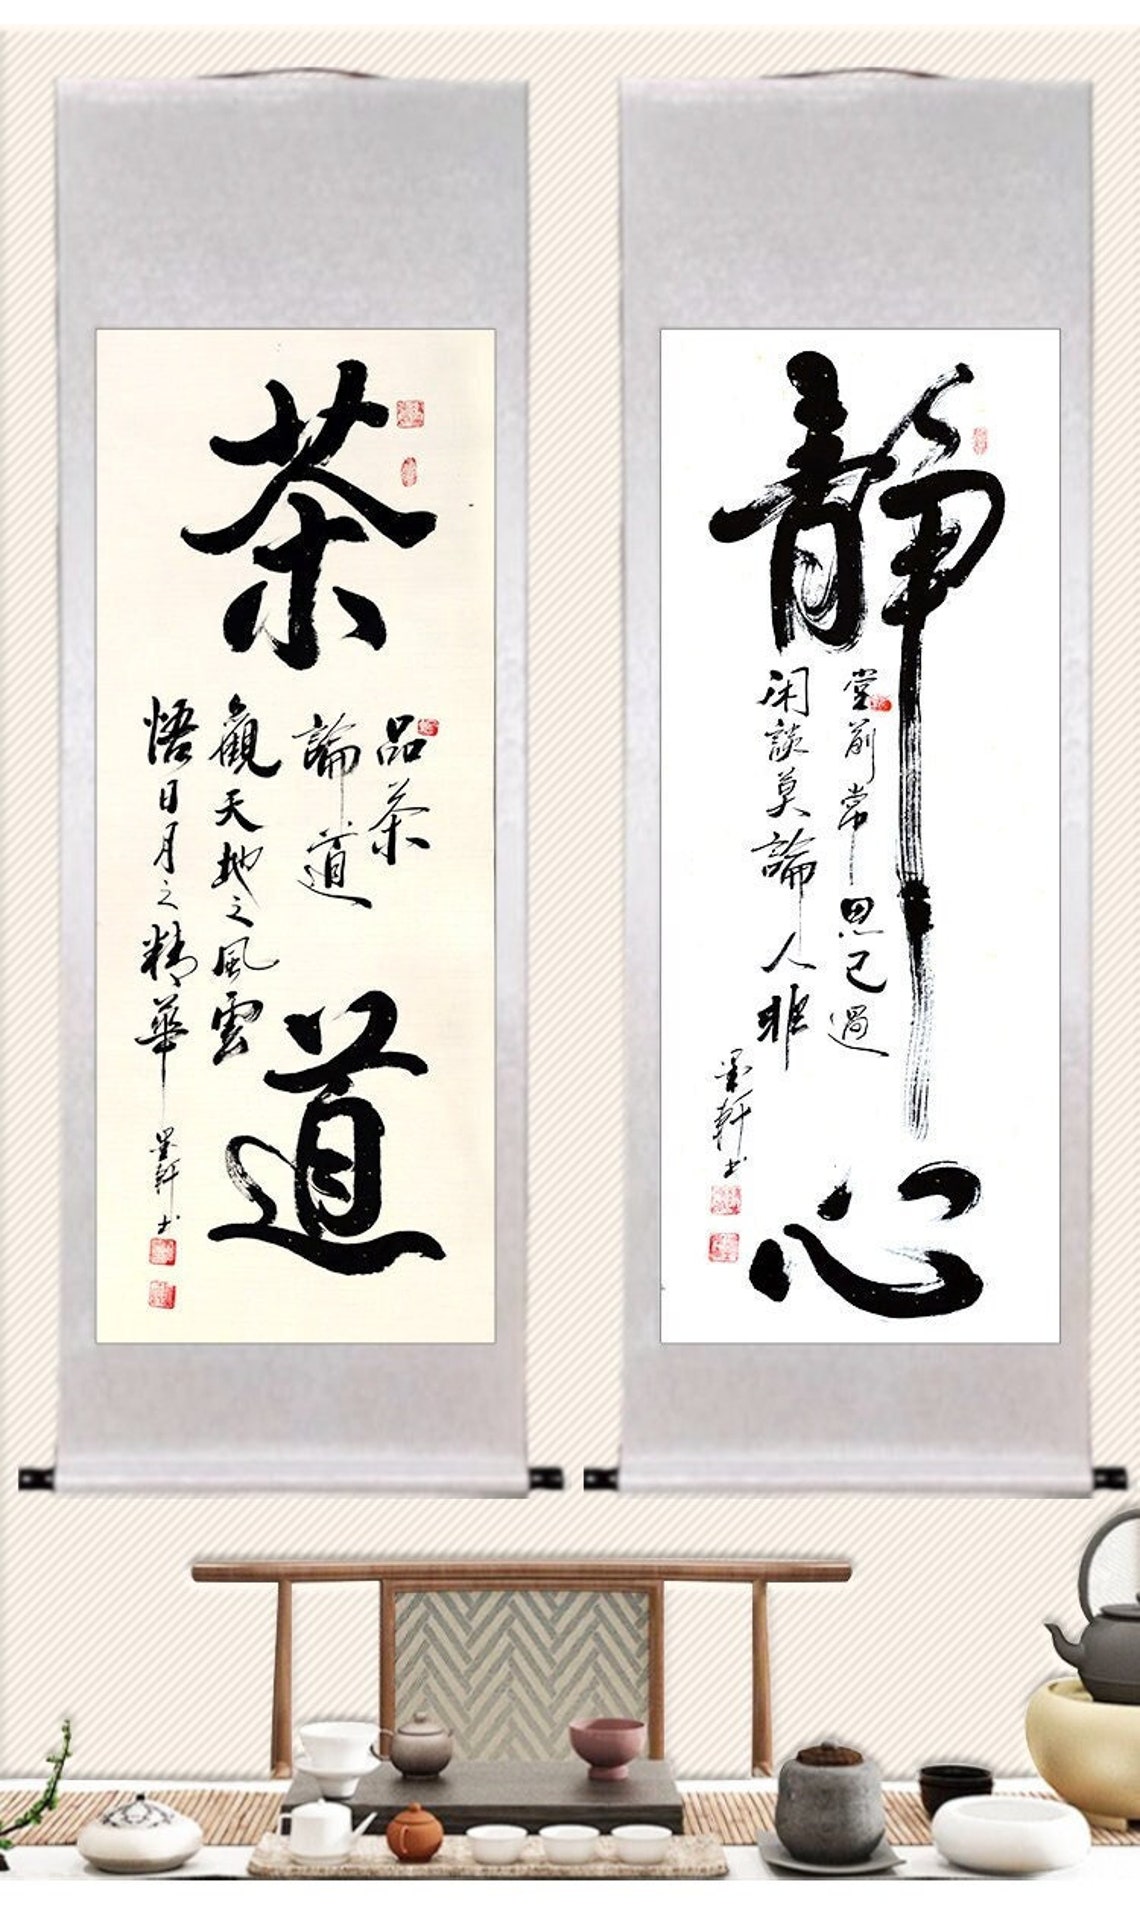 茶道
品茶
論道
觀天地之風雲
悟日月之精華
墨軒书
静心
堂前常思己過
闲談莫論人非
墨軒书